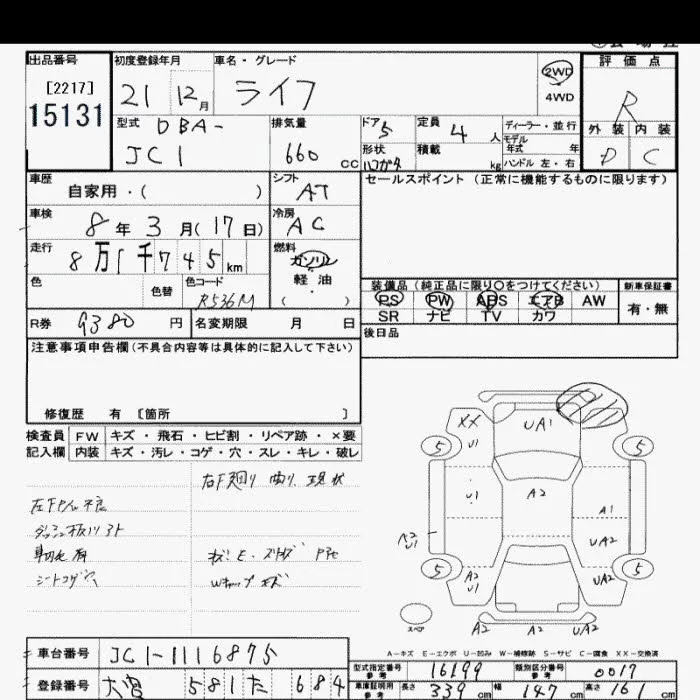 出品番号 初度登録年月 車名・グレード 2WD 評価点
[2217] 21 12月 ライフ 4WD R
15131
型式 DBA- 排気量 ドア 5 定員 4人 ディーラー・並行 外装 内装
JC1 660cc 形状 積載 kg モデル年式 年 D C
ハンドル 左・右
車歴 シフト セールスポイント (正常に機能するものに限ります)
自家用・( ) AT
車検 8年3月(17日) 冷房 AC
走行 8万1千745km 燃料 ガソリン
軽油
( )
色 色替 色コード R536M
装備品(純正品に限り〇をつけてください) 新車保証書
PS PW ABS エアB AW 有・無
SR ナビ TV カワ
R券 9380円 名変期限 月 日 後日品
注意事項申告欄(不具合内容等は具体的に記入して下さい)
修復歴 有 [箇所 ]
検査員 FW キズ・飛石・ヒビ割・リペア跡・×要
記入欄 内装 キズ・汚レ・コゲ・穴・スレ・キレ・破レ
右F廻り 現状
シートコゲ穴
XX U1 UA1
5 5
U1 A2 A1
A2 U1 UA2
5 A2 U1 UA2 5
スペア A2 A2 UA2
A-キズ E-エクボ U-凹ミ W-補修跡 S-サビ C-腐食 XX-交換済
車台番号 JC1-1116875
型式指定番号 参考 16199 類別区分番号 参考 0017
登録番号 581 た 684
車庫証明用 参考 長さ 339cm 幅 147cm 高さ 161cm